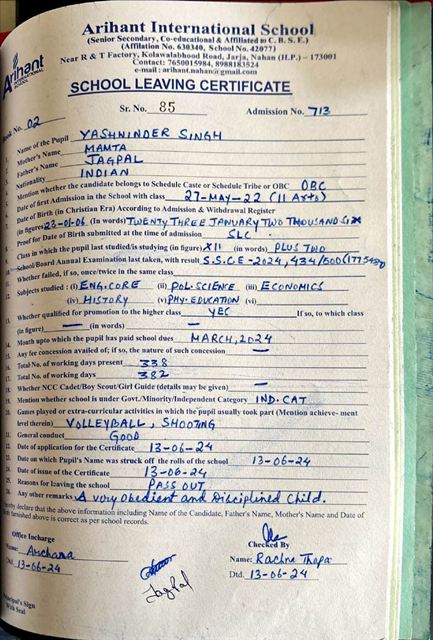 Arihant International School
(Senior Secondary, Co-educational & Affiliated to C. B. S. E.)
(Affilation No. 630340, School No. 42077)
Near R & T Factory, Kolawalabhood Road, Jarja, Nahan (H.P.) – 173001
Contact: 7650015984, 8988183524
e-mail : arihant.nahan@gmail.com
Arihant
SCHOOL LEAVING CERTIFICATE
Sr. No. 85 Admission No. 713
Book No. 02
1. Name of the Pupil YASHNINDER SINGH
2. Mother's Name MAMTA
3. Father's Name JAGPAL
4. Nationality INDIAN
5. Mention whether the candidate belongs to Schedule Caste or Schedule Tribe or OBC OBC
6. Date of first Admission in the School with class 27-MAY-22 (11 Arts)
Date of Birth (in Christian Era) According to Admission & Withdrawal Register
(in figures) 23-01-06 (In words) TWENTY THREE JANUARY TWO THOUSAND SIX
Proof for Date of Birth submitted at the time of admission SLC
Class in which the pupil last studied/is studying (in figure) XII (in words) PLUS TWO
School/Board Annual Examination last taken, with result S.S.C.E-2024, 434/500
Whether failed, if so, once/twice in the same class
12. Subjects studied : (i) ENG.CORE (ii) POL.SCIENCE (iii) ECONOMICS
(iv) HISTORY (v) PHY.EDUCATION (vi)
13. Whether qualified for promotion to the higher class YES If so, to which class
(in figure) — (in words) —
14. Month upto which the pupil has paid school dues MARCH, 2024
15. Any fee concession availed of; if so, the nature of such concession —
16. Total No. of working days present 338
17. Total No. of working days 382
18. Whether NCC Cadet/Boy Scout/Girl Guide (details may be given) —
19. Mention whether school is under Govt./Minority/Independent Category IND. CAT
20. Games played or extra-curricular activities in which the pupil usually took part (Mention achieve- ment
level therein) VOLLEYBALL, SHOOTING
21. General conduct GOOD
22. Date of application for the Certificate 13-06-24
23. Date on which Pupil's Name was struck off the rolls of the school 13-06-24
24. Date of issue of the Certificate 13-06-24
25. Reasons for leaving the school PASS OUT
26. Any other remarks A very obedient and Disciplined Child.
hereby declare that the above information including Name of the Candidate, Father's Name, Mother's Name and Date of
furnished above is correct as per school records.
Office Incharge
Checked By
Name: Archana
Name: Rachna Thapa
Dtd. 13-06-24
Dtd. 13-06-24
Jagpal
Principal's Sign
With Seal